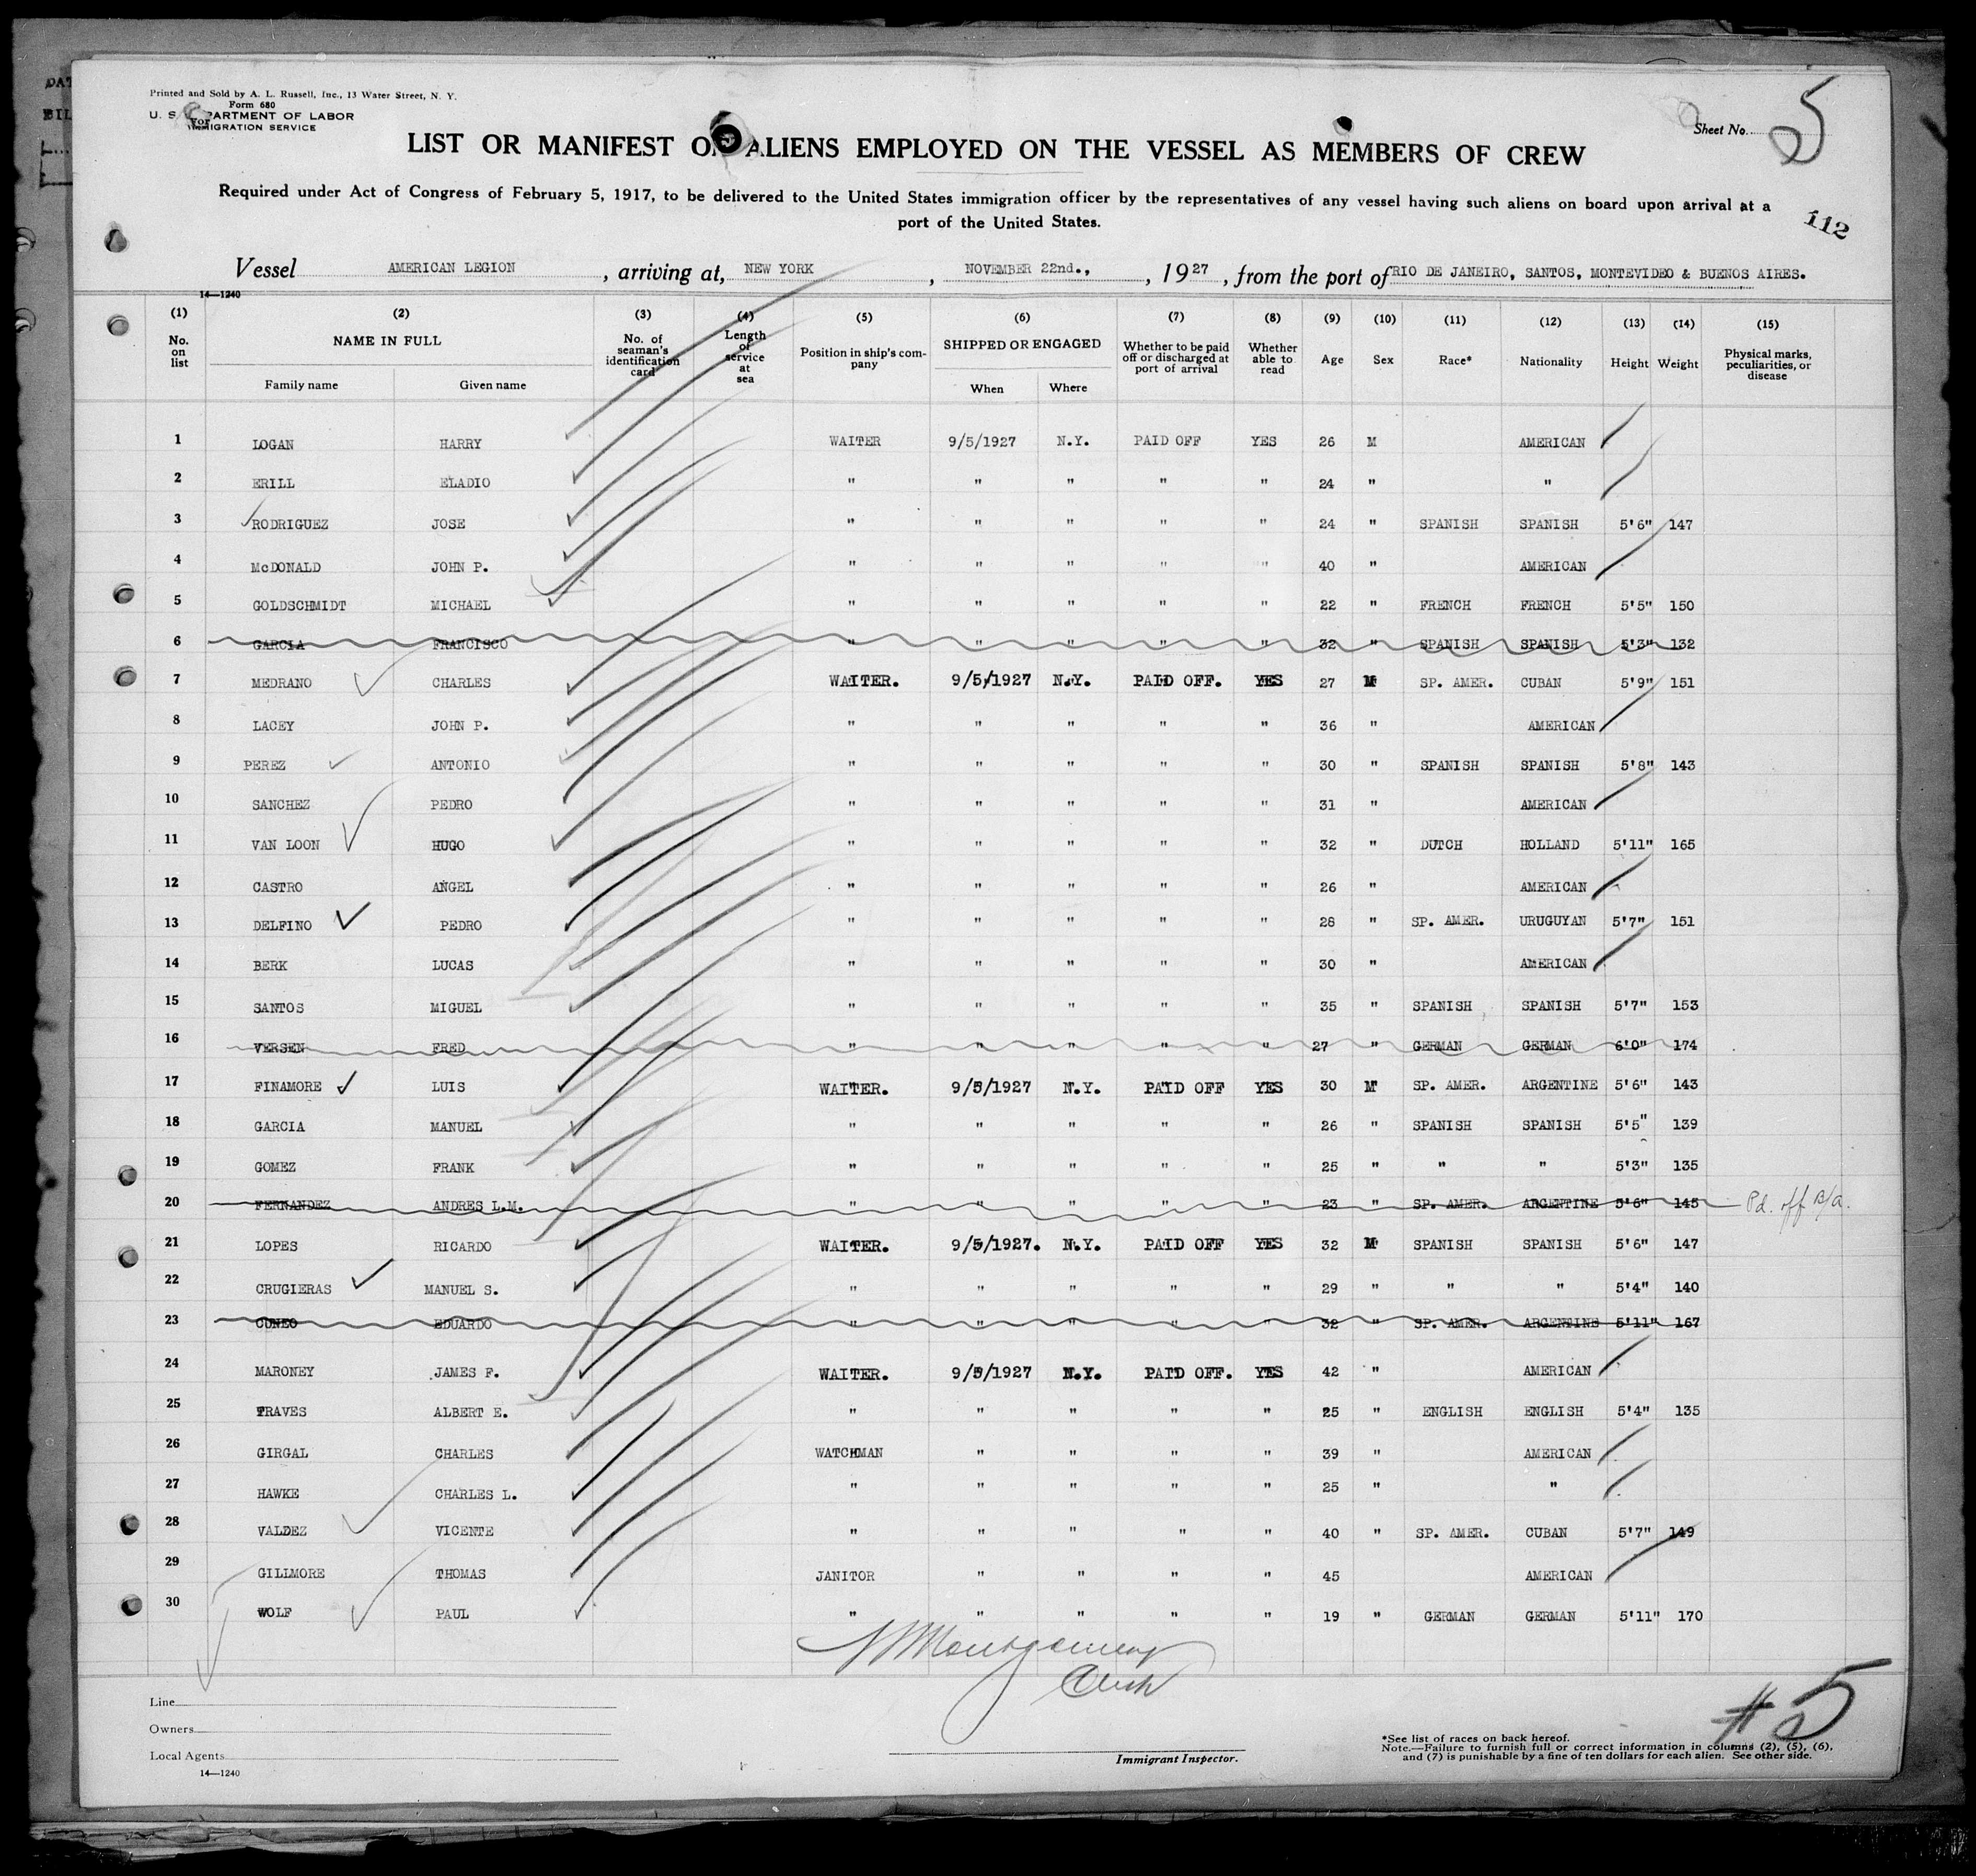 Printed and Sold by A. L. Russell, Inc., 13 Water Street, N. Y.
Form 680
U. S. DEPARTMENT OF LABOR
IMMIGRATION SERVICE
Sheet No. 5
LIST OR MANIFEST OF ALIENS EMPLOYED ON THE VESSEL AS MEMBERS OF CREW
Required under Act of Congress of February 5, 1917, to be delivered to the United States immigration officer by the representatives of any vessel having such aliens on board upon arrival at a
port of the United States.
112
Vessel AMERICAN LEGION, arriving at, NEW YORK, NOVEMBER 22nd., , 1927, from the port of RIO DE JANEIRO, SANTOS, MONTEVIDEO & BUENOS AIRES.
14—1240
(1) (2) (3) (4) (5) (6) (7) (8) (9) (10) (11) (12) (13) (14) (15)
No. on list NAME IN FULL Family name Given name No. of seaman's identification card Length of service at sea Position in ship's company SHIPPED OR ENGAGED When Where Whether to be paid off or discharged at port of arrival Whether able to read Age Sex Race* Nationality Height Weight Physical marks, peculiarities, or disease
1 LOGAN HARRY WAITER 9/5/1927 N.Y. PAID OFF YES 26 M AMERICAN
2 ERILL ELADIO " " " " " 24 " "
3 RODRIGUEZ JOSE " " " " " 24 " SPANISH SPANISH 5'6" 147
4 McDONALD JOHN P. " " " " " 40 " AMERICAN
5 GOLDSCHMIDT MICHAEL " " " " " 22 " FRENCH FRENCH 5'5" 150
6 GARCIA FRANCISCO " " " " " 32 " SPANISH SPANISH 5'3" 132
7 MEDRANO CHARLES WAITER. 9/5/1927 N.Y. PAID OFF. YES 27 M SP. AMER. CUBAN 5'9" 151
8 LACEY JOHN P. " " " " " 36 " AMERICAN
9 PEREZ ANTONIO " " " " " 30 " SPANISH SPANISH 5'8" 143
10 SANCHEZ PEDRO " " " " " 31 " AMERICAN
11 VAN LOON HUGO " " " " " 32 " DUTCH HOLLAND 5'11" 165
12 CASTRO ANGEL " " " " " 26 " AMERICAN
13 DELFINO PEDRO " " " " " 28 " SP. AMER. URUGUYAN 5'7" 151
14 BERK LUCAS " " " " " 30 " AMERICAN
15 SANTOS MIGUEL " " " " " 35 " SPANISH SPANISH 5'7" 153
16 VERSEN FRED " " " " " 27 " GERMAN GERMAN 6'0" 174
17 FINAMORE LUIS WAITER. 9/5/1927 N.Y. PAID OFF YES 30 M SP. AMER. ARGENTINE 5'6" 143
18 GARCIA MANUEL " " " " " 26 " SPANISH SPANISH 5'5" 139
19 GOMEZ FRANK " " " " " 25 " " " 5'3" 135
20 FERNANDEZ ANDRES L.M. " " " " " 23 " SP. AMER. ARGENTINE 5'6" 145 Pd. off B/A.
21 LOPES RICARDO WAITER. 9/5/1927. N.Y. PAID OFF YES 32 M SPANISH SPANISH 5'6" 147
22 CRUGIERAS MANUEL S. " " " " " 29 " " " 5'4" 140
23 CUNEO EDUARDO " " " " " 32 " SP. AMER. ARGENTINE 5'11" 167
24 MARONEY JAMES F. WAITER. 9/5/1927 N.Y. PAID OFF. YES 42 " AMERICAN
25 TRAVES ALBERT E. " " " " " 25 " ENGLISH ENGLISH 5'4" 135
26 GIRGAL CHARLES WATCHMAN " " " " 39 " AMERICAN
27 HAWKE CHARLES L. " " " " " 25 " "
28 VALDEZ VICENTE " " " " " 40 " SP. AMER. CUBAN 5'7" 149
29 GILLMORE THOMAS JANITOR " " " " 45 AMERICAN
30 WOLF PAUL " " " " " 19 " GERMAN GERMAN 5'11" 170
Montgomery
Clerk
Line
Owners
Local Agents
14—1240
Immigrant Inspector.
# 5
*See list of races on back hereof.
Note.—Failure to furnish full or correct information in columns (2), (5), (6),
and (7) is punishable by a fine of ten dollars for each alien. See other side.